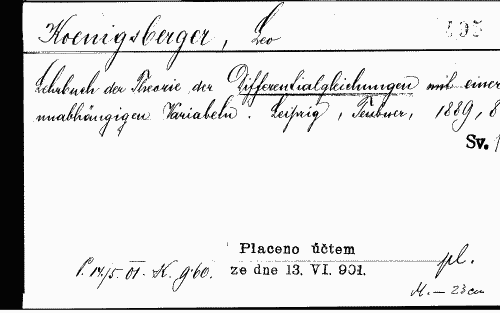 Koenigsberger, Leo
Lehrbuch der Theorie der Differentialgleichungen mit einer
unabhängigen Variabeln. Leipzig, Teubner, 1889, 8
Sv. 1
Placeno účtem
pl.
P. 14/5. 01. K. 9·60. ze dne 13. VI. 901.
M. — 23 cm